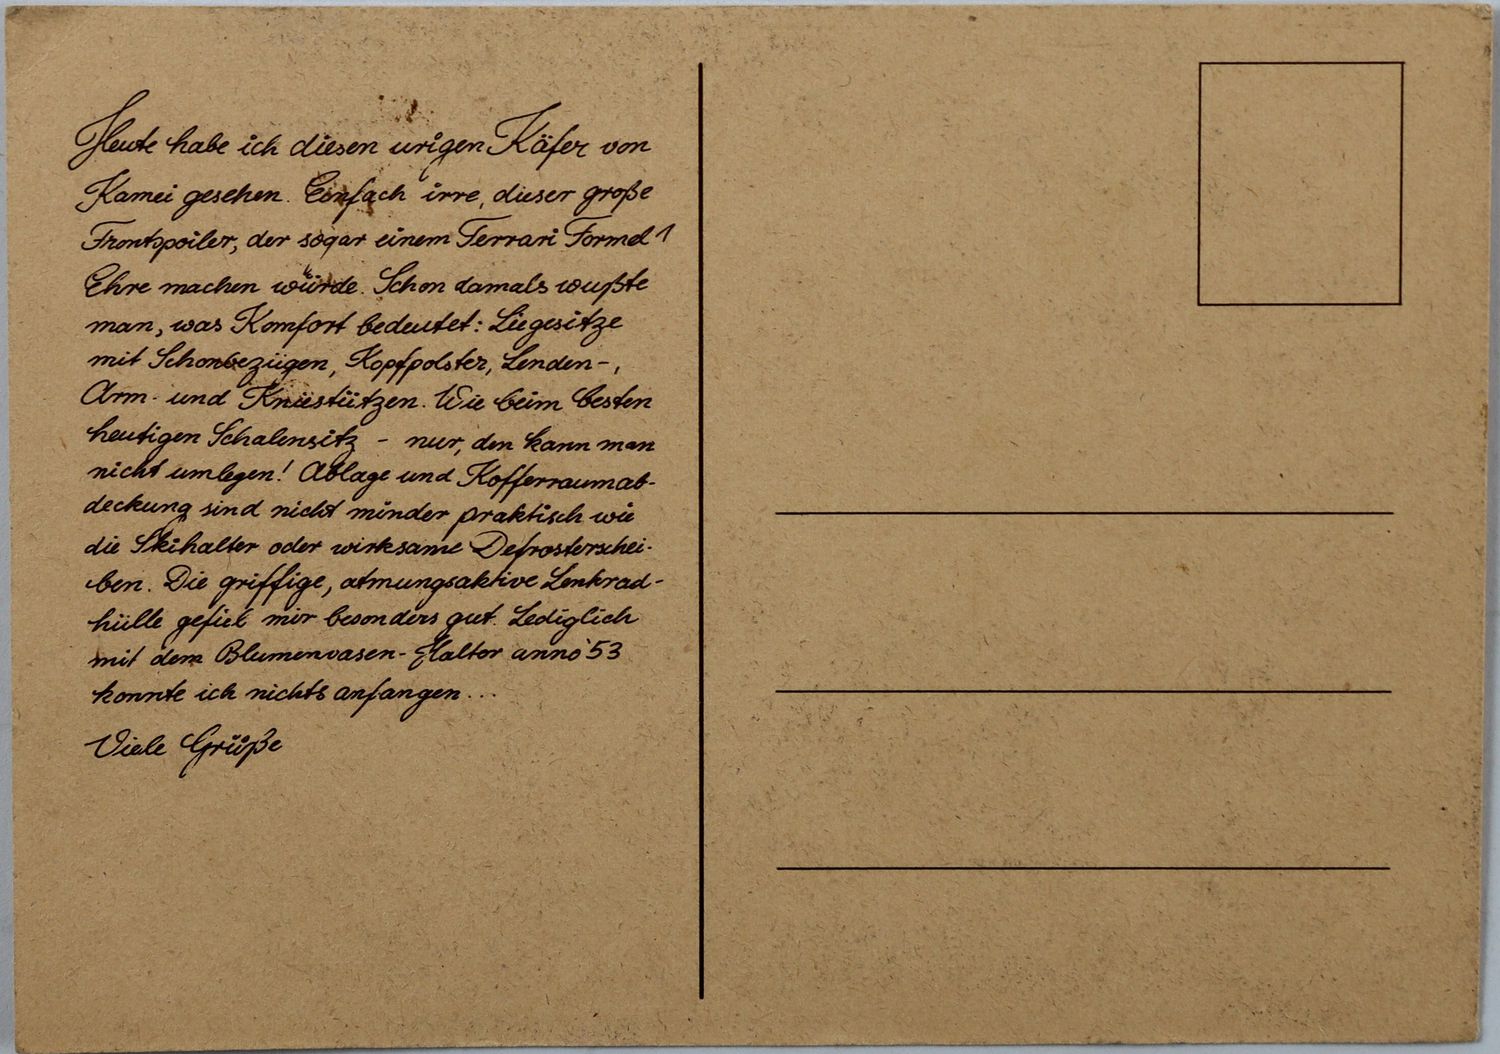 Heute habe ich diesen urigen Käfer von
Kamei gesehen. Einfach irre, dieser große
Frontspoiler, der sogar einem Ferrari Formel 1
Ehre machen würde. Schon damals wußte
man, was Komfort bedeutet: Liegesitze
mit Schonbezügen, Kopfpolster, Lenden-,
Arm- und Kniestützen. Wie beim besten
heutigen Schalensitz - nur, den kann man
nicht umlegen! Ablage und Kofferraumab-
deckung sind nicht minder praktisch wie
die Skihalter oder wirksame Defrosterschei-
ben. Die griffige, atmungsaktive Lenkrad-
hülle gefiel mir besonders gut. Lediglich
mit dem Blumenvasen-Halter anno '53
konnte ich nichts anfangen...
Viele Grüße